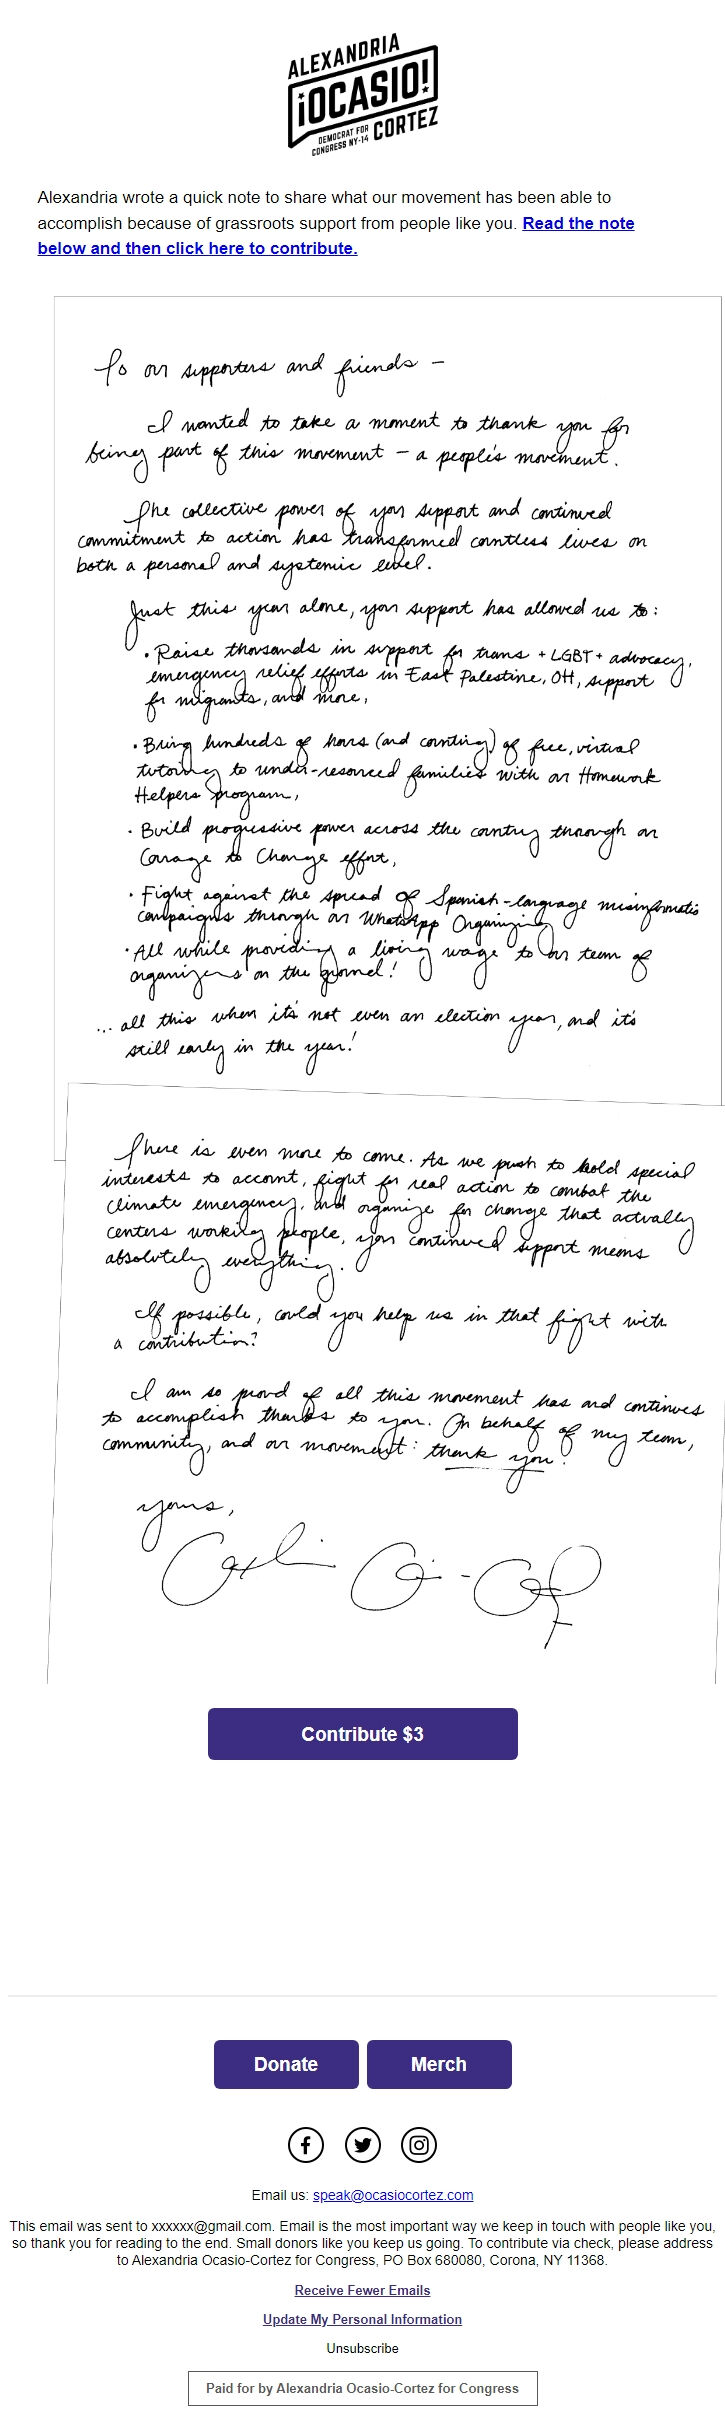 ALEXANDRIA
¡OCASIO!
DEMOCRAT FOR
CONGRESS NY-14
CORTEZ
Alexandria wrote a quick note to share what our movement has been able to
accomplish because of grassroots support from people like you. Read the note
below and then click here to contribute.
To our supporters and friends –
I wanted to take a moment to thank you for
being part of this movement – a people's movement.
The collective power of your support and continued
commitment to action has transformed countless lives on
both a personal and systemic level.
Just this year alone, your support has allowed us to:
• Raise thousands in support for trans + LGBT + advocacy,
emergency relief efforts in East Palestine, OH, support
for migrants, and more,
• Bring hundreds of hours (and counting) of free, virtual
tutoring to under-resourced families with our Homework
Helpers program,
• Build progressive power across the country through our
Courage to Change effort,
• Fight against the spread of Spanish-language misinformatio
campaigns through our WhatsApp Organizing
• All while providing a living wage to our team of
organizers on the ground!
... all this when it's not even an election year, and it's
still early in the year!
There is even more to come. As we push to hold special
interests to account, fight for real action to combat the
climate emergency, and organize for change that actually
centers working people, your continued support means
absolutely everything.
If possible, could you help us in that fight with
a contribution?
I am so proud of all this movement has and continues
to accomplish thanks to you. On behalf of my team,
community, and our movement: thank you!
yours,
Contribute $3
Donate
Merch
Email us: speak@ocasiocortez.com
This email was sent to xxxxxx@gmail.com. Email is the most important way we keep in touch with people like you,
so thank you for reading to the end. Small donors like you keep us going. To contribute via check, please address
to Alexandria Ocasio-Cortez for Congress, PO Box 680080, Corona, NY 11368.
Receive Fewer Emails
Update My Personal Information
Unsubscribe
Paid for by Alexandria Ocasio-Cortez for Congress